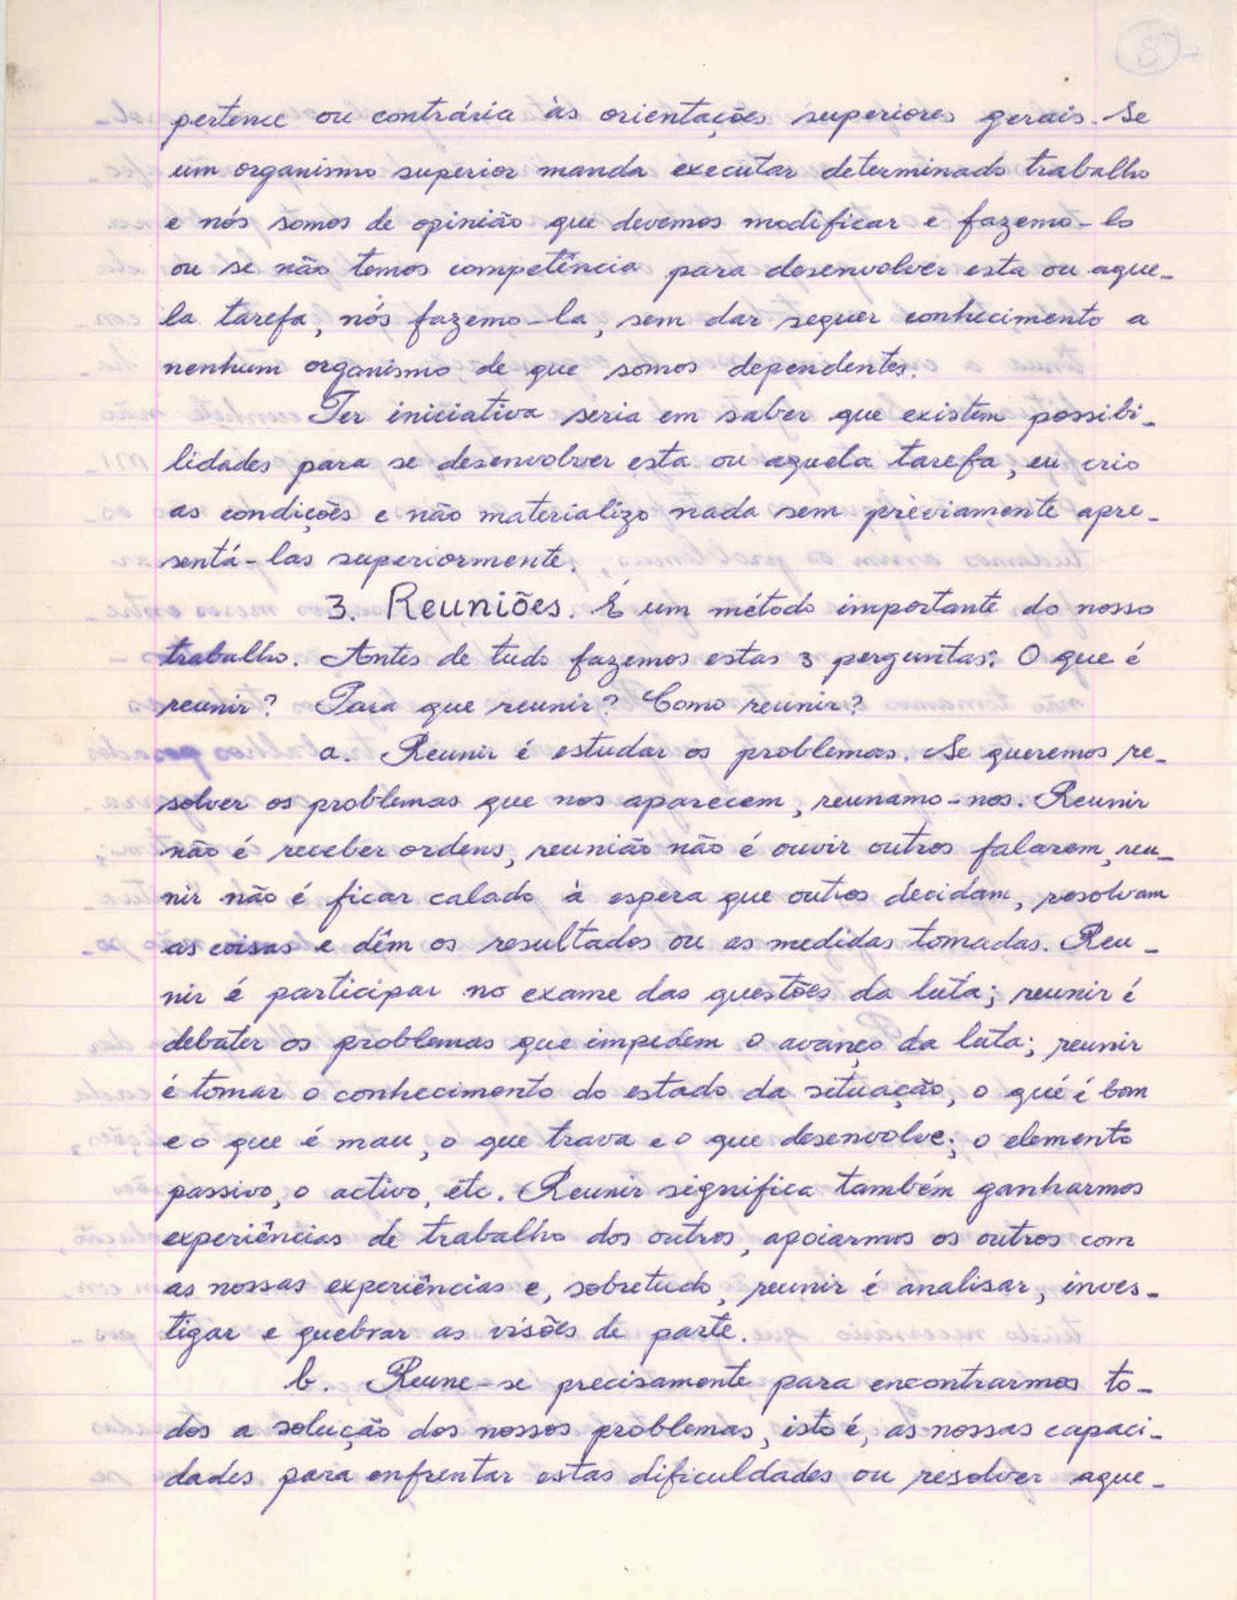 8
pertence ou contrária às orientações superiores gerais. Se
um organismo superior manda executar determinado trabalho
e nós somos de opinião que devemos modificar e fazemo-lo
ou se não temos competência para desenvolver esta ou aque-
la tarefa, nós fazemo-la, sem dar sequer conhecimento a
nenhum organismo de que somos dependentes.
Ter iniciativa seria em saber que existem possibi-
lidades para se desenvolver esta ou aquela tarefa, eu crio
as condições e não materializo nada sem prèviamente apre-
sentá-las superiormente.
3. Reuniões. É um método importante do nosso
trabalho. Antes de tudo fazemos estas 3 perguntas: O que é
reunir? Para que reunir? Como reunir?
a. Reunir é estudar os problemas. Se queremos re-
solver os problemas que nos aparecem, reunamo-nos. Reunir
não é receber ordens, reunião não é ouvir outros falarem, reu-
nir não é ficar calado à espera que outros decidam, resolvam
as coisas e dêm os resultados ou as medidas tomadas. Reu-
nir é participar no exame das questões da luta; reunir é
debater os problemas que impedem o avanço da luta; reunir
é tomar o conhecimento do estado da situação, o qué é bom
e o que é mau, o que trava e o que desenvolve; o elemento
passivo, o activo, etc. Reunir significa também ganharmos
experiências de trabalho dos outros, apoiarmos os outros com
as nossas experiências e, sobretudo, reunir é analisar, inves-
tigar e quebrar as visões de parte.
b. Reune-se precisamente para encontrarmos to-
dos a solução dos nossos problemas, isto é, as nossas capaci-
dades para enfrentar estas dificuldades ou resolver aque-